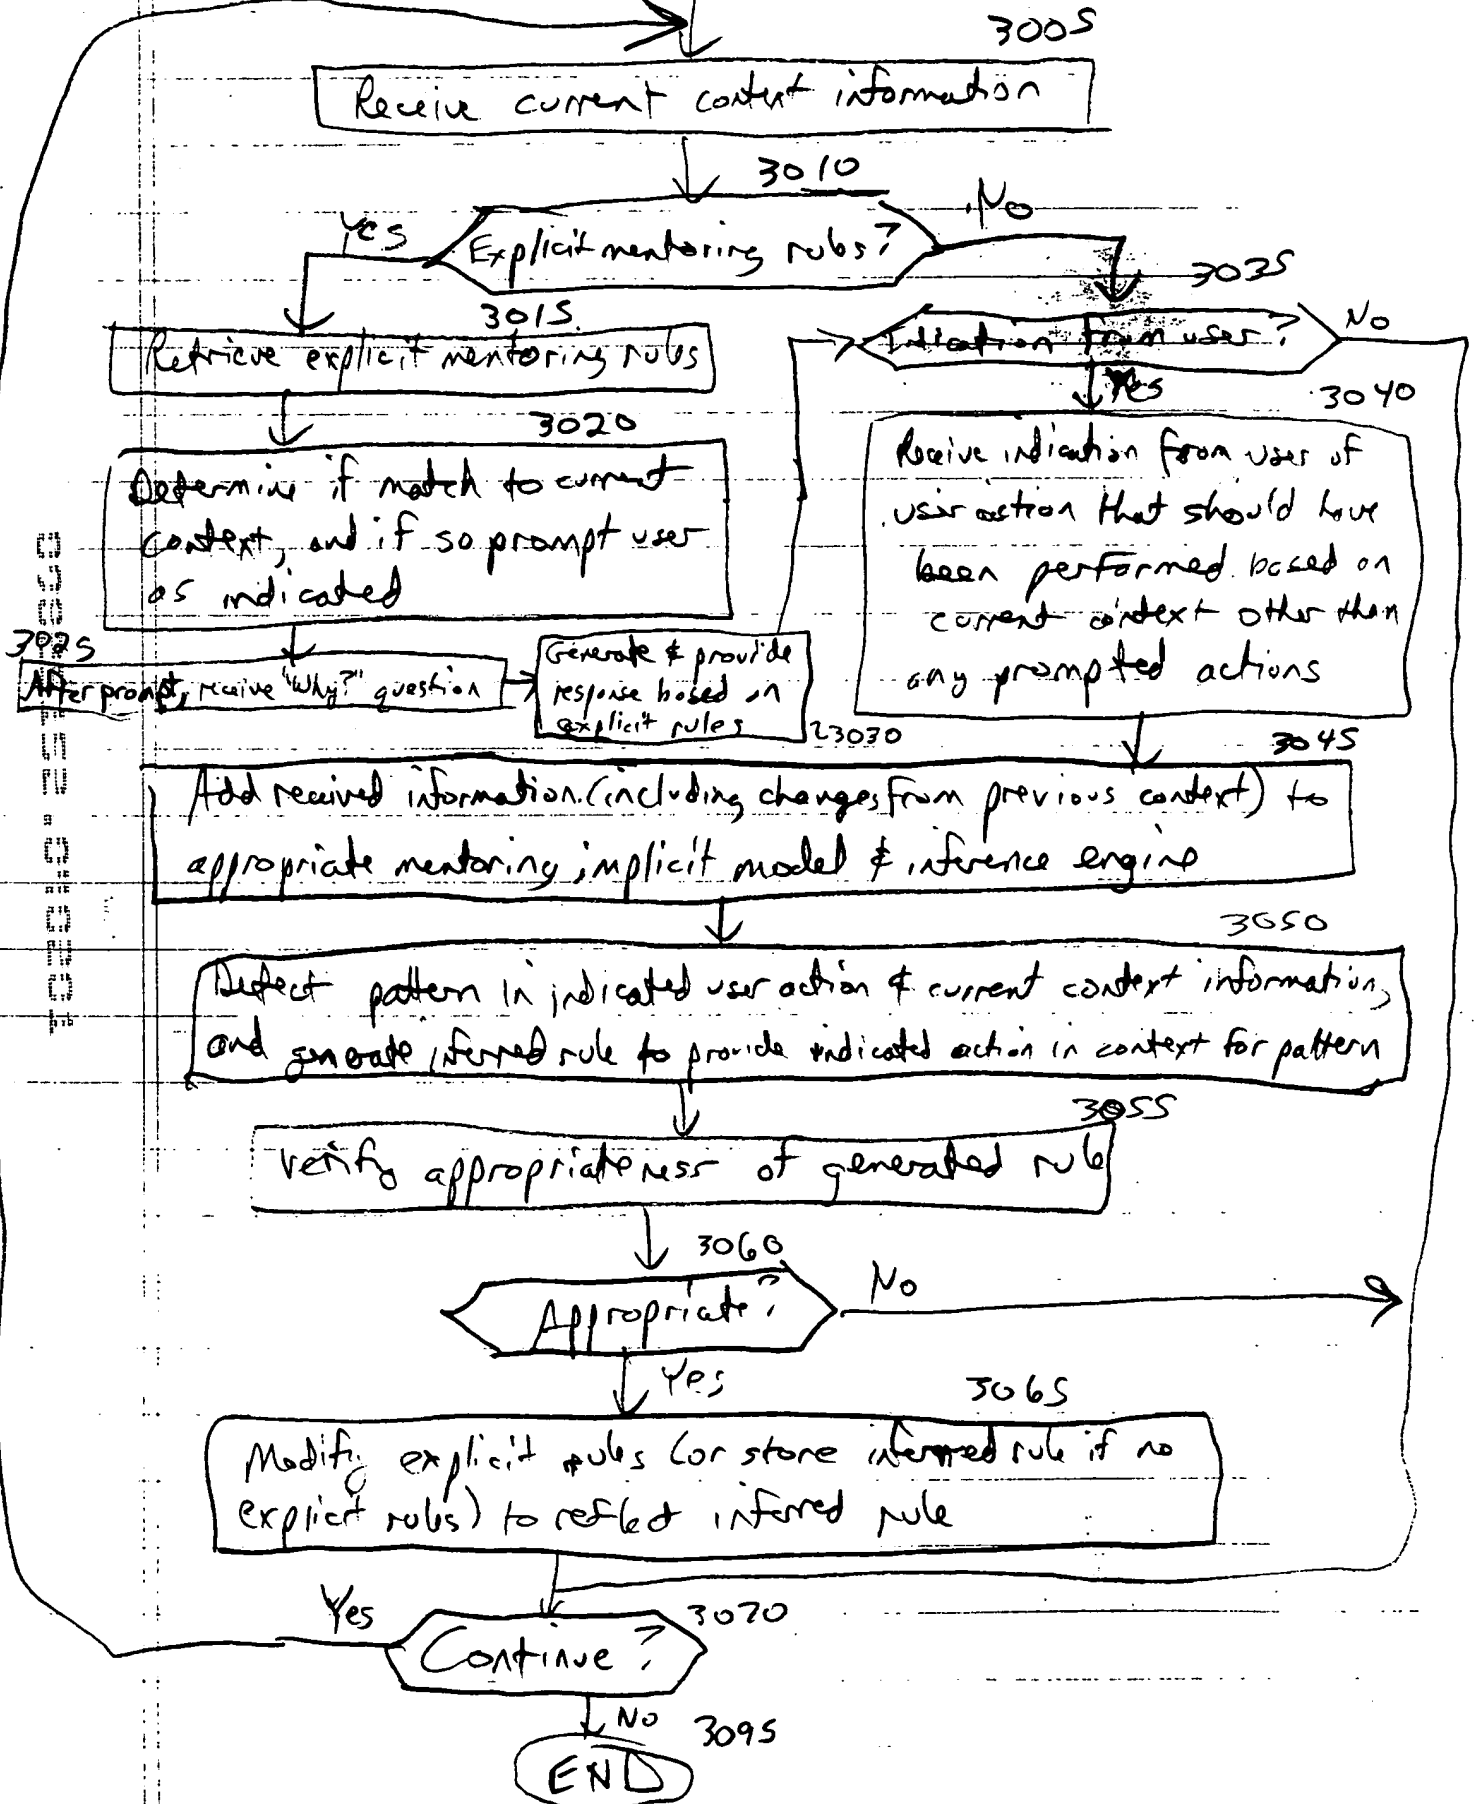 3005
Receive current context information
3010
Yes
No
Explicit mentoring rules?
3035
3015
Retrieve explicit mentoring rules
Indication from user?
No
Yes
3040
3020
Determine if match to current
context, and if so prompt user
as indicated
Receive indication from user of
user action that should have
been performed based on
current context other than
any prompted actions
3025
After prompt, receive "Why?" question
Generate & provide
response based on
explicit rules
3030
3045
Add received information (including changes from previous context) to
appropriate mentoring implicit model & inference engine
3050
Detect pattern in indicated user action & current context information,
and generate inferred rule to provide indicated action in context for pattern
3055
Verify appropriateness of generated rule
3060
Appropriate?
No
Yes
3065
Modify explicit rules (or store inferred rule if no
explicit rules) to reflect inferred rule
Yes
3070
Continue?
No
3095
END